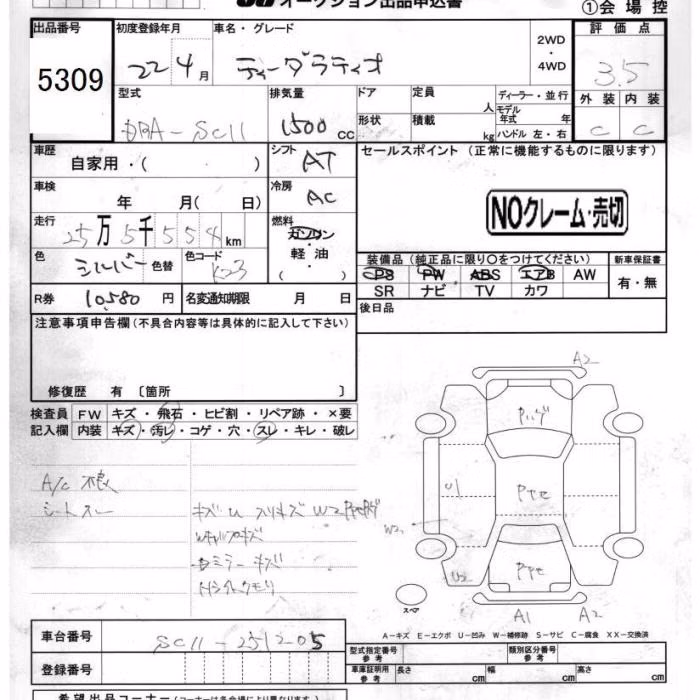 オークション出品申込書 ①会場控
出品番号 5309
初度登録年月 22 4月
車名・グレード ティーダラティオ
2WD・4WD
評価点 3.5
型式 DBA-SC11
排気量 1500 cc
ドア 形状
定員 人 積載 kg
ディーラー・並行
モデル年式 年
ハンドル 左・右
外装 C 内装 C
車歴 自家用・( )
シフト AT
セールスポイント (正常に機能するものに限ります)
車検 年 月( 日)
冷房 AC
NOクレーム・売切
走行 25万5千554km
燃料 ガソリン 軽油 ( )
色 シルバー 色替
色コード K23
装備品(純正品に限り○をつけてください) 新車保証書
PS PW ABS エアB AW 有・無
SR ナビ TV カワ
R券 10,580円 名変通知期限 月 日
後日品
注意事項申告欄(不具合内容等は具体的に記入して下さい)
修復歴 有 〔箇所 〕
検査員 FW キズ・飛石・ヒビ割・リペア跡・×要
記入欄 内装 キズ・汚レ・コゲ・穴・スレ・キレ・破レ
A/C 不良
シートスレ
キズ U スリキズ W2
ミラーキズ
A2
U1
W2
U2
スペア
A1 A2
A－キズ E－エクボ U－凹み W－補修跡 S－サビ C－腐食 XX－交換済
車台番号 SC11-251205
型式指定番号 参考 類別区分番号 参考
登録番号
車庫証明用 参考 長さ cm 幅 cm 高さ cm
希望出品コーナー(コーナーは各会場により異なります)